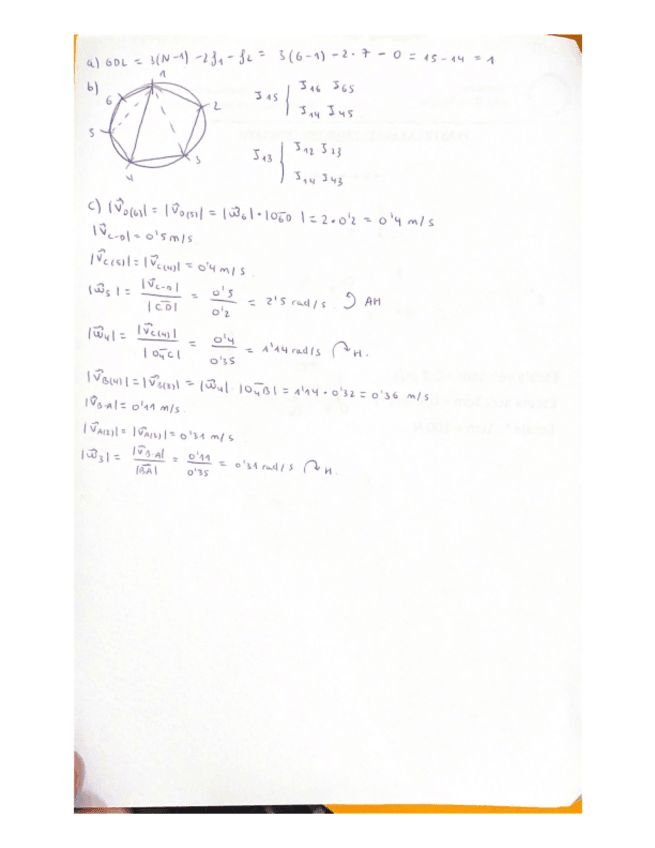 a) GDL = 3(N-1) -2f1 - f2 = 3(6-1) - 2·7 - 0 = 15-14 = 1
b)
1
6
2
5
3
4
J15 { J16 J65
J14 J45
J13 { J12 J23
J14 J43
c) |V⃗D(6)| = |V⃗D(5)| = |ω⃗6|·|O6D| = 2·0'2 = 0'4 m/s
|V⃗C-D| = 0'5 m/s
|V⃗C(5)| = |V⃗C(4)| = 0'4 m/s.
|ω⃗5| = |V⃗C-D| / |CD| = 0'5 / 0'2 = 2'5 rad/s. AH
|ω⃗4| = |V⃗C(4)| / |O4C| = 0'4 / 0'35 = 1'14 rad/s H.
|V⃗B(4)| = |V⃗B(3)| = |ω⃗4|·|O4B| = 1'14·0'32 = 0'36 m/s
|V⃗B-A| = 0'11 m/s.
|V⃗A(2)| = |V⃗A(3)| = 0'31 m/s
|ω⃗3| = |V⃗B-A| / |BA| = 0'11 / 0'35 = 0'31 rad/s H.